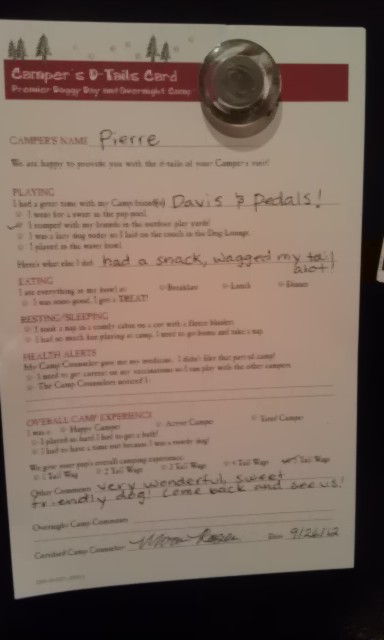 Camper's D-Tails Card
Premier Doggy Day and Overnight Camp
CAMPER'S NAME Pierre
We are happy to provide you with the d-tails of your Camper's visit!
PLAYING
I had a great time with my Camp friend(s) Davis & Pedals!
I went for a swim in the pup pool.
I romped with my friends in the outdoor play yards!
I was a lazy dog today so I laid on the couch in the Dog Lounge.
I played in the water bowl.
Here's what else I did: had a snack, wagged my tail
alot!
EATING
I ate everything in my bowl at: Breakfast Lunch Dinner
I was sooo good, I got a TREAT!
RESTING/SLEEPING
I took a nap in a comfy cabin on a cot with a fleece blanket.
I had so much fun playing at camp, I need to go home and take a nap.
HEALTH ALERTS
My Camp Counselor gave me my medicine. I didn't like that part of camp!
I need to get current on my vaccinations so I can play with the other campers.
The Camp Counselors noticed I
OVERALL CAMP EXPERIENCE
I was a Happy Camper Active Camper Tired Camper
I played so hard I had to get a bath!
I had to have a time out because I was a rowdy dog!
We give your pup's overall camping experience:
1 Tail Wag 2 Tail Wags 3 Tail Wags 4 Tail Wags Tail Wags
Other Comments very wonderful, sweet
friendly dog! Come back and see us!
Overnight Camp Comments
Certified Camp Counselor Date 9/26/12